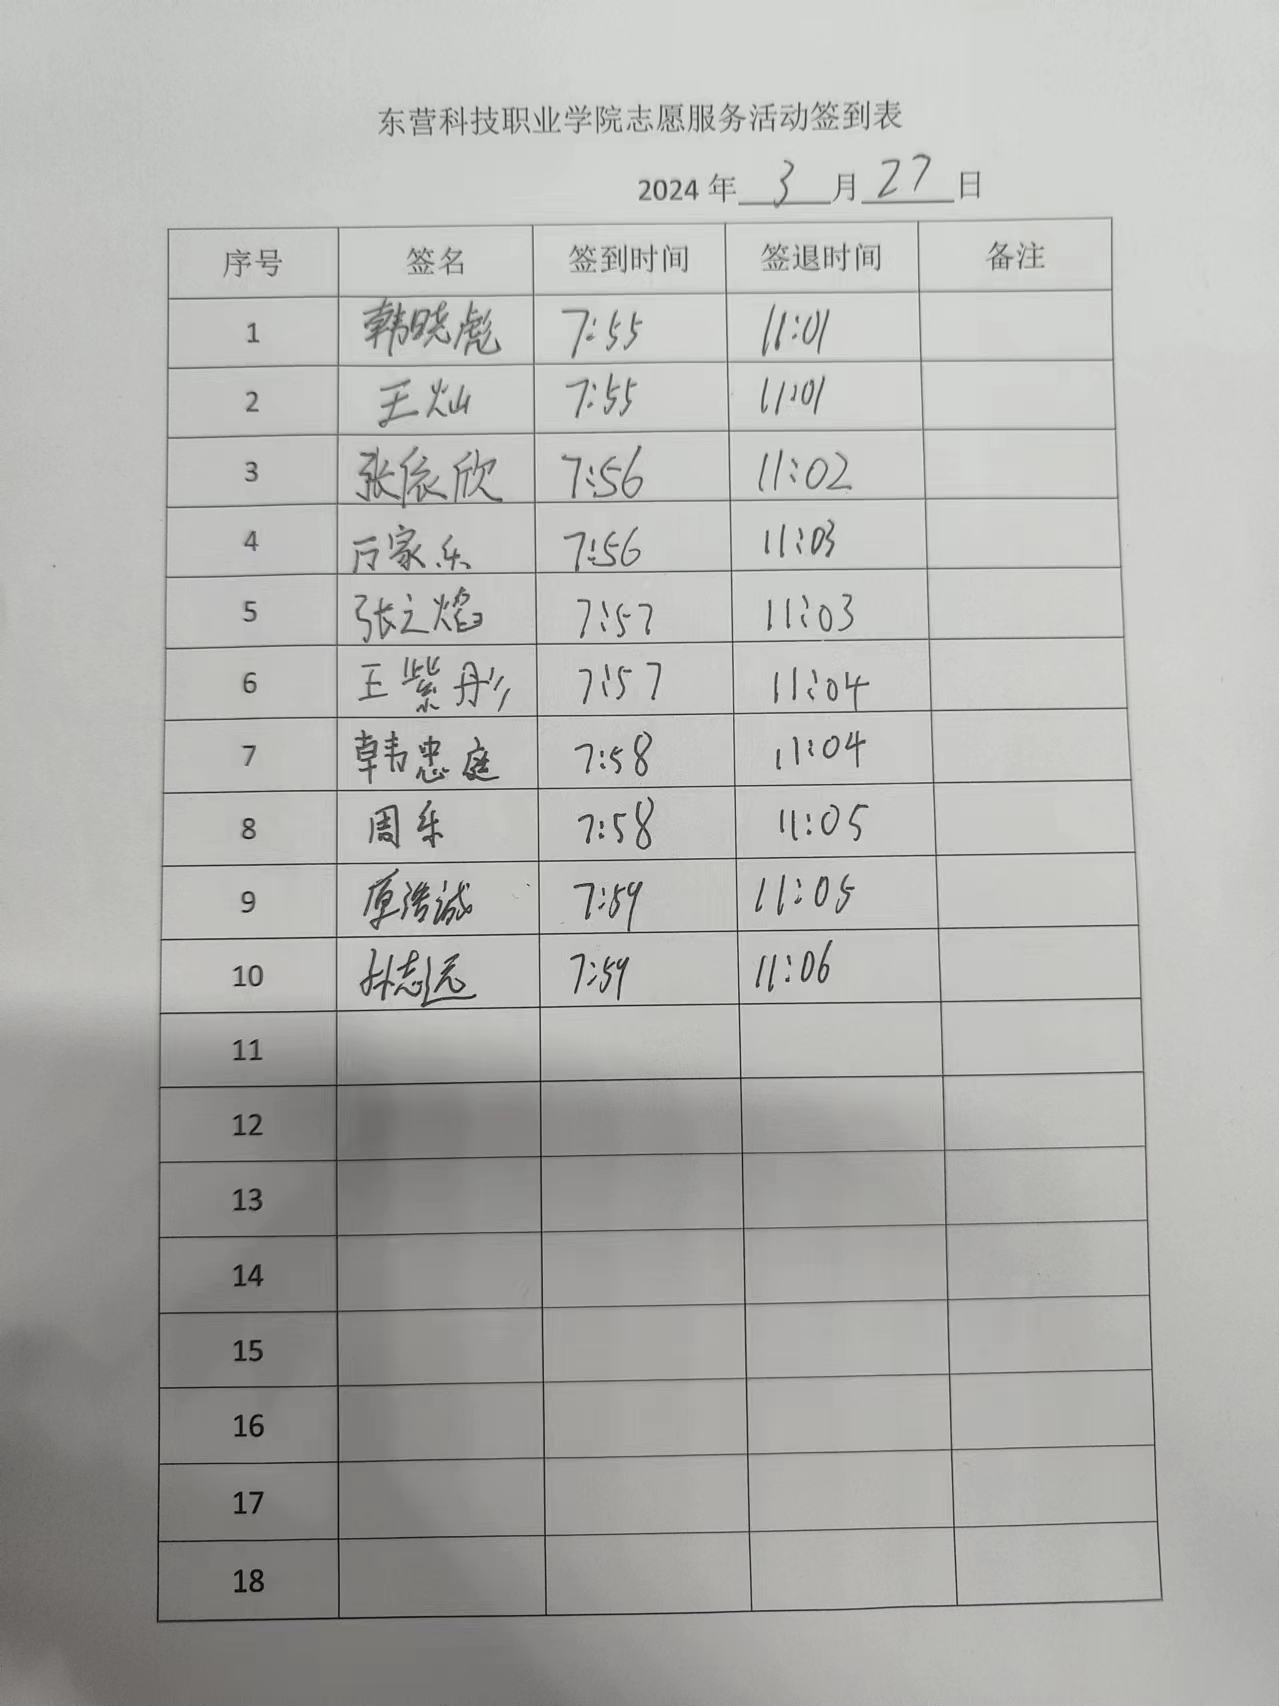 东营科技职业学院志愿服务活动签到表
2024 年 3 月 27 日
序号 签名 签到时间 签退时间 备注
1 韩晓彪 7:55 11:01
2 王灿 7:55 11:01
3 张依欣 7:56 11:02
4 万家乐 7:56 11:03
5 张之焰 7:57 11:03
6 王紫彤 7:57 11:04
7 韩忠庭 7:58 11:04
8 周乐 7:58 11:05
9 原浩诚 7:59 11:05
10 孙志远 7:59 11:06
11
12
13
14
15
16
17
18